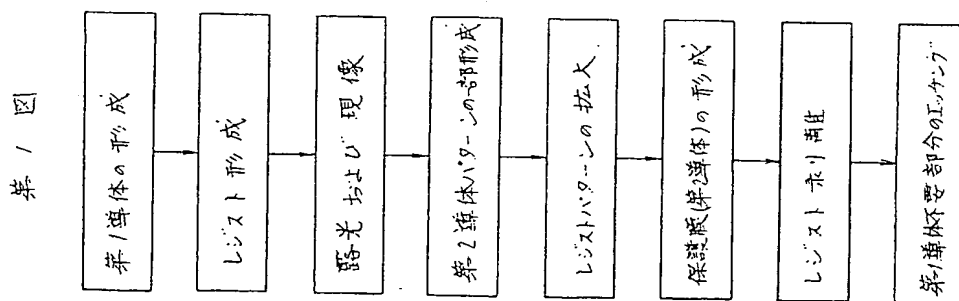 第1図
第1導体の形成
レジスト形成
露光および現像
第2導体パターンの一部形成
レジストパターンの拡大
保護膜(第2導体)の形成
レジスト剥離
第1導体不要部分のエッチング